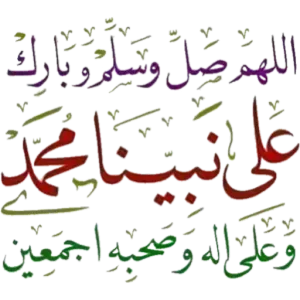 اللهم صلِّ وسلِّم وبارك
على نبينا محمد
وعلى اله وصحبه اجمعين